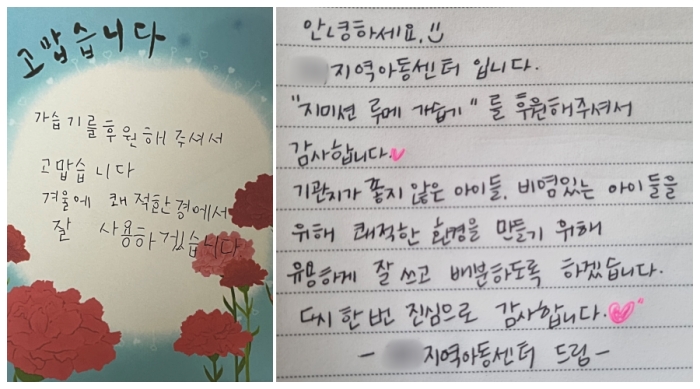 고맙습니다
가습기를 후원해 주셔서
고맙습니다
겨울에 쾌적한경에서
잘 사용하겠습니다.
안녕하세요.
지역아동센터 입니다.
"지미션 루메 가습기"를 후원해주셔서
감사합니다.
기관지가 좋지 않은 아이들, 비염있는 아이들을
위해 쾌적한 환경을 만들기 위해
유용하게 잘 쓰고 배분하도록 하겠습니다.
다시 한 번 진심으로 감사합니다.
- 지역아동센터 드림 -